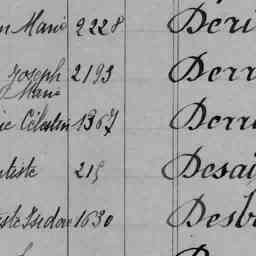 Marie 2228 Deri
Joseph 2193 Derr
Marie
Célestin 1367 Derr
219 Desai
Isidore 1630 Desb